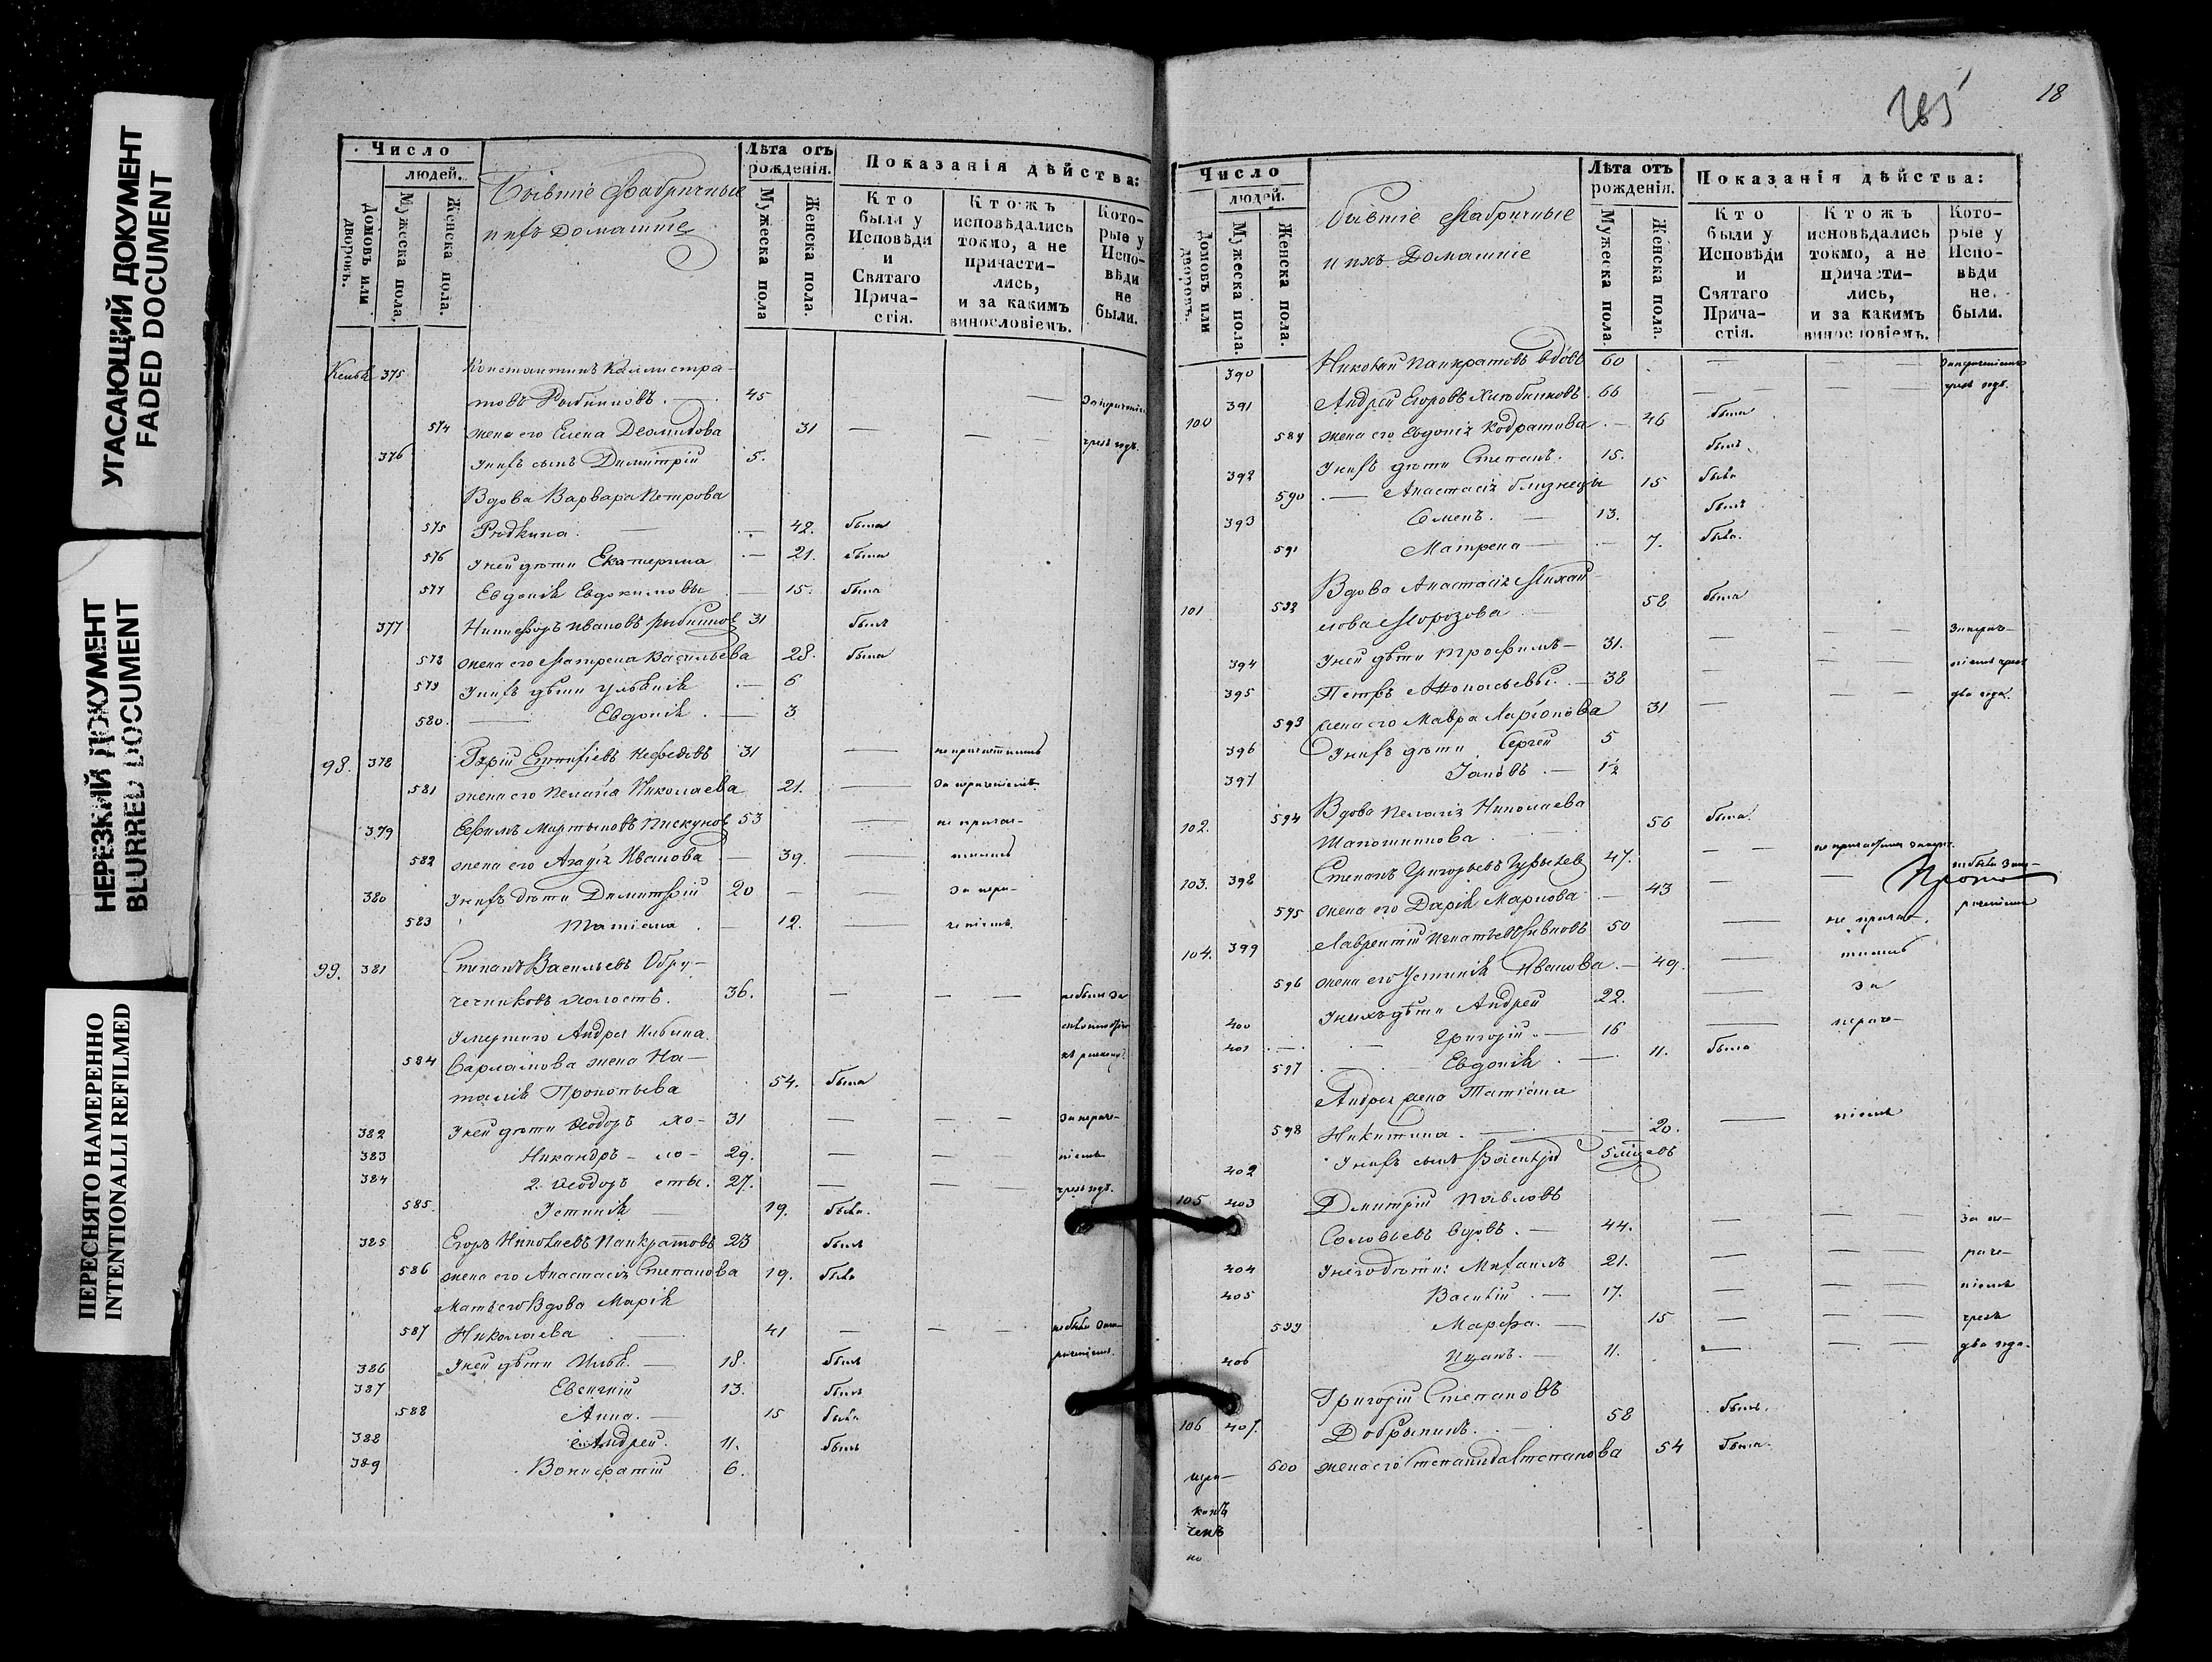 УГАСАЮЩИЙ ДОКУМЕНТ
FADED DOCUMENT
НЕРЕЗКИЙ ДОКУМЕНТ
BLURRED DOCUMENT
ПЕРЕСНЯТО НАМЕРЕННО
INTENTIONALLI REFILMED
Число
людей.
Домовъ или дворовъ.
Мужеска пола.
Женска пола.
Бывшіе Фабричные
ихъ Домашніе
Лѣта отъ рожденія.
Мужеска пола
Женска пола.
Показанія дѣйства:
Кто были у Исповѣди и Святаго Прича-стія.
Кто жъ исповѣдались токмо, а не причасти-лись, и за какимъ винословіемъ.
Кото-рые у Испо-вѣди не были.
375 Константинъ Каллистра-
товъ Рыбниковъ. 45
574 жена его Елена Деомидова 31
376 У нихъ сынъ Димитрій 5.
Вдова Варвара Петрова
575 Рѣдкина. 42. была
576 У ней дѣти Екатерина 21. была
577 Евдокія Евдокимовы 15. была
377 Никифоръ Ивановъ Рыбниковъ 31 былъ
578 жена его Матрена Васильева 28. была
579 У нихъ дѣти 6
580. Евдокія. 3
98. 378 31
581 жена его Пелагія Николаева 21.
379 Ефимъ Мартыновъ Пискуновъ 53
582 жена его Агафія Иванова 39.
380 У нихъ дѣти Димитрій 20
583 Татіана 12.
99. 381 Степанъ Васильевъ Обру-
чниковъ холостъ. 36.
Умершаго Андрея Ильина
584 Варламова жена На-
талія Прокопьева 54. была
382 У ней дѣти Ѳеодоръ хо- 31
383 Никандръ - ло- 29.
384 2. Ѳеодоръ сты. 27.
585. Устинія 19. была.
385 Егоръ Николаевъ Панкратовъ 23 былъ
586 жена его Анастасія Степанова 19. была
Мать его Вдова Марія
587 Николаева 41
386 У ней дѣти Илья. 18. былъ
387 Евгеній 13. былъ
588 Анна. 15 была
388 Андрей. 11. былъ
389 Вонифатій 6.
18
Число
людей.
Домовъ или дворовъ.
Мужеска пола.
Женска пола.
Бывшіе Фабричные
и ихъ Домашніе
Лѣта отъ рожденія.
Мужеска пола.
Женска пола.
Показанія дѣйства:
Кто были у Исповѣди и Святаго Прича-стія.
Кто жъ исповѣдались токмо, а не причасти-лись, и за какимъ винословіемъ.
Кото-рые у Испо-вѣди не были.
390 Николай Панкратовъ вдовъ 60
391 Андрей Егоровъ Хлѣбниковъ. 66
100 589 жена его Евдокія Кодратова 46 была
392 У нихъ дѣти Степанъ. 15. былъ
590 Анастасія близнецы 15 была
393 Семенъ. 13. былъ
591 Матрена 7. была.
Вдова Анастасія Михай-
101 592 лова Морозова 58 была
394 У ней дѣти Трофимъ 31.
395 Петръ Афонасьевы. 38
593 жена его Мавра Ларіонова 31
396 У нихъ дѣти Сергей 5
397 Іаковъ. 1½
594 Вдова Пелагія Николаева
102. Шапошникова. 56 была.
103. 398 Степанъ Григорьевъ 47.
595 жена его Дарія Маркова 43
104. 399 Лаврентій Игнатьевъ 50
596 жена его Устинія Иванова. 49.
400 У нихъ дѣти Андрей 22.
401 Григорій. 16
597 Евдокія 11. была
Андрея жена Татіана
598 Никитина. 20.
402 У нихъ сынъ Василій 5 мѣсяцовъ
105 403 Дмитрій Павловъ
Соловьевъ вдовъ. 44.
404 У него дѣти: Михаилъ 21.
405 Василій. 17.
599 Марфа. 15
406 Иванъ. 11.
Григорій Степановъ
106 407. Добрынинъ. 58 былъ.
600 жена его Степанида Степанова 54 была.